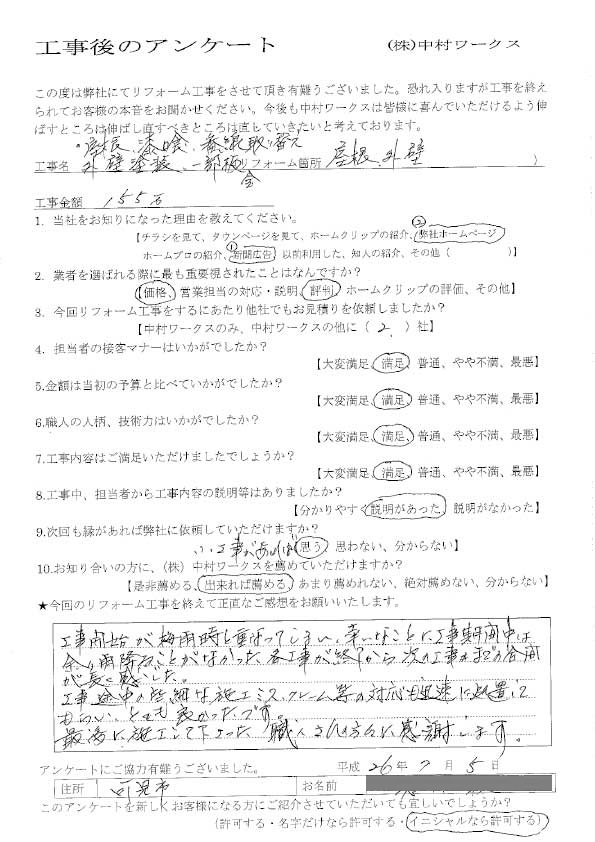 工事後のアンケート　(株)中村ワークス
この度は弊社にてリフォーム工事をさせて頂き有難うございました。恐れ入りますが工事を終え
られてお客様の本音をお聞かせください。今後も中村ワークスは皆様に喜んでいただけるよう伸
ばすところは伸ばし直すべきところは直していきたいと考えております。
・屋根、漆喰、番線取り替え
工事名 外壁塗装、一部板金 リフォーム箇所 屋根、外壁 )
工事金額 155万
1. 当社をお知りになった理由を教えてください。
② 【チラシを見て、タウンページを見て、ホームクリップの紹介、弊社ホームページ
① ホームプロの紹介、新聞広告 以前利用した、知人の紹介、その他（　　）】
2. 業者を選ばれる際に最も重要視されたことはなんですか？
【価格、営業担当の対応・説明、評判、ホームクリップの評価、その他】
3. 今回リフォーム工事をするにあたり他社でもお見積りを依頼しましたか？
【中村ワークスのみ、中村ワークスの他に（ 2 ）社】
4. 担当者の接客マナーはいかがでしたか？
【大変満足、満足、普通、やや不満、最悪】
5.金額は当初の予算と比べていかがでしたか？
【大変満足、満足、普通、やや不満、最悪】
6.職人の人柄、技術力はいかがでしたか？
【大変満足、満足、普通、やや不満、最悪】
7.工事内容はご満足いただけましたでしょうか？
【大変満足、満足、普通、やや不満、最悪】
8.工事中、担当者から工事内容の説明等はありましたか？
【分かりやすく説明があった、説明がなかった】
9.次回も縁があれば弊社に依頼していただけますか？
いい工事であれば 思う、思わない、分からない】
10.お知り合いの方に、(株) 中村ワークスを薦めていただけますか？
【是非薦める、出来れば薦める、あまり薦めれない、絶対薦めない、分からない】
★今回のリフォーム工事を終えて正直なご感想をお願いいたします。
工事開始が梅雨時と重なってしまい、幸いなことに工事期間中は
余り雨降ることがなかった。各工事が終了から次の工事までの合間
が長く感じた。
工事途中の些細な施工ミス、クレーム等の対応も迅速に処置して
もらい、とても良かったです。
最後に施工して下さった職人さん方々に感謝します。
アンケートにご協力有難うございました。　平成 26年 7月 5日
住所 可児市 お名前
このアンケートを新しくお客様になる方にご紹介させていただいても宜しいでしょうか？
（許可する・名字だけなら許可する・イニシャルなら許可する）